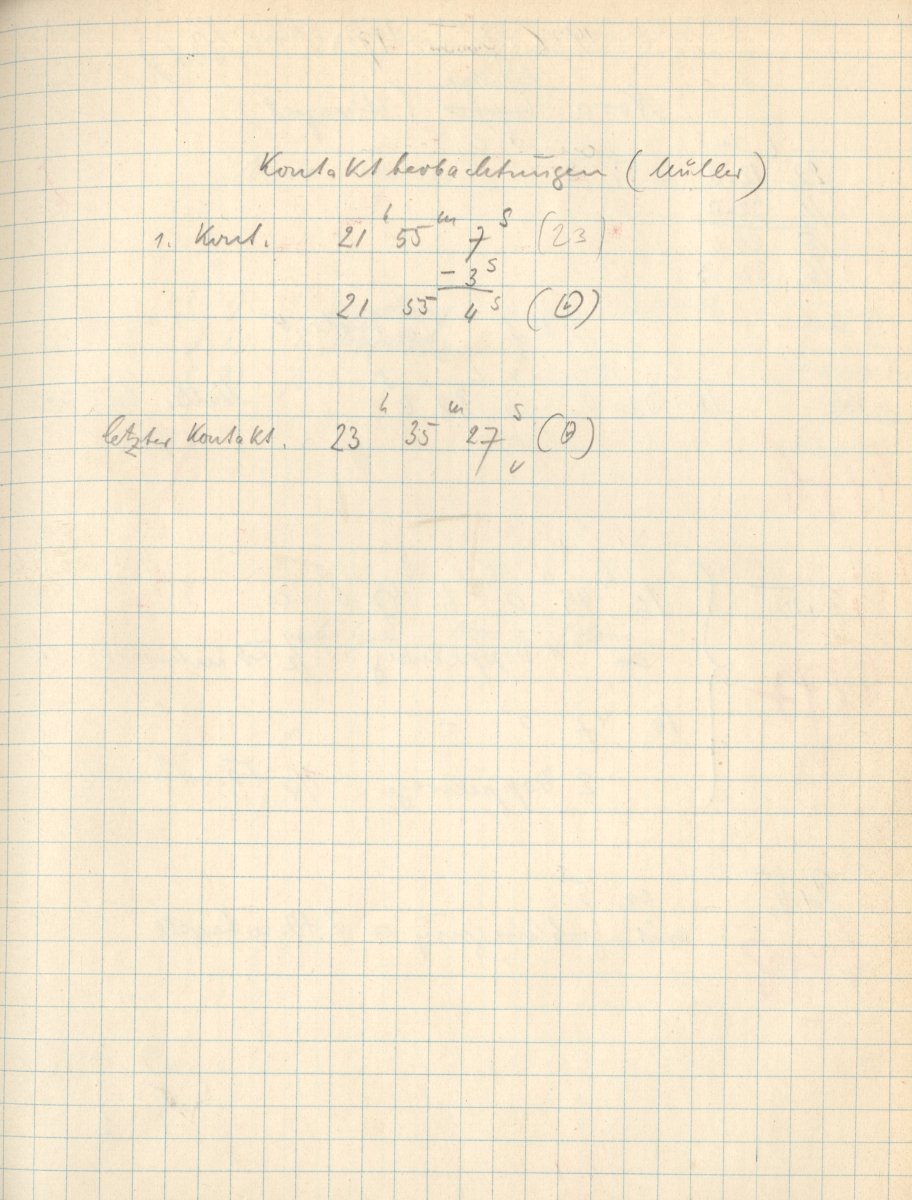 Kontaktbeobachtungen (Müller)
1. Kont. 21ʰ 55ᵐ 7ˢ (23)
– 3ˢ
21 55 4ˢ
letzter Kontakt. 23ʰ 35ᵐ 27ˢ